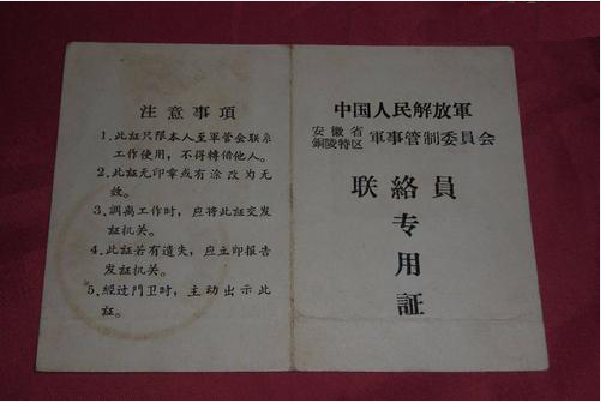 注意事項
1、此証只限本人至軍管会联系
工作使用，不得轉借他人。
2、此証无印章或有涂改为无
效。
3、調离工作时，应将此証交发
証机关。
4、此証若有遗失，应立即报告
发証机关。
5、经过门卫时，主动出示此
証。
中国人民解放軍
安徽省
銅陵特区
軍事管制委員会
联絡員
专
用
証